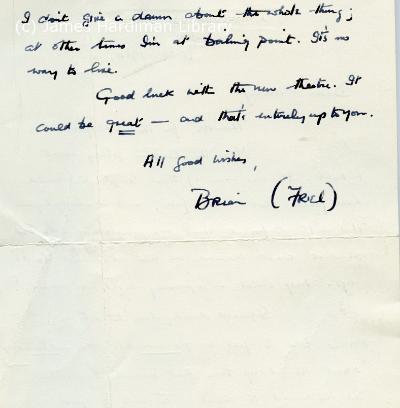 I don't give a damn about the whole thing;
(c) James Hardiman Library
at other times I'm at boiling point. It's no
way to live.
Good luck with the new theatre. It
could be great — and that's entirely up to you.
All good wishes,
Brian (Friel)